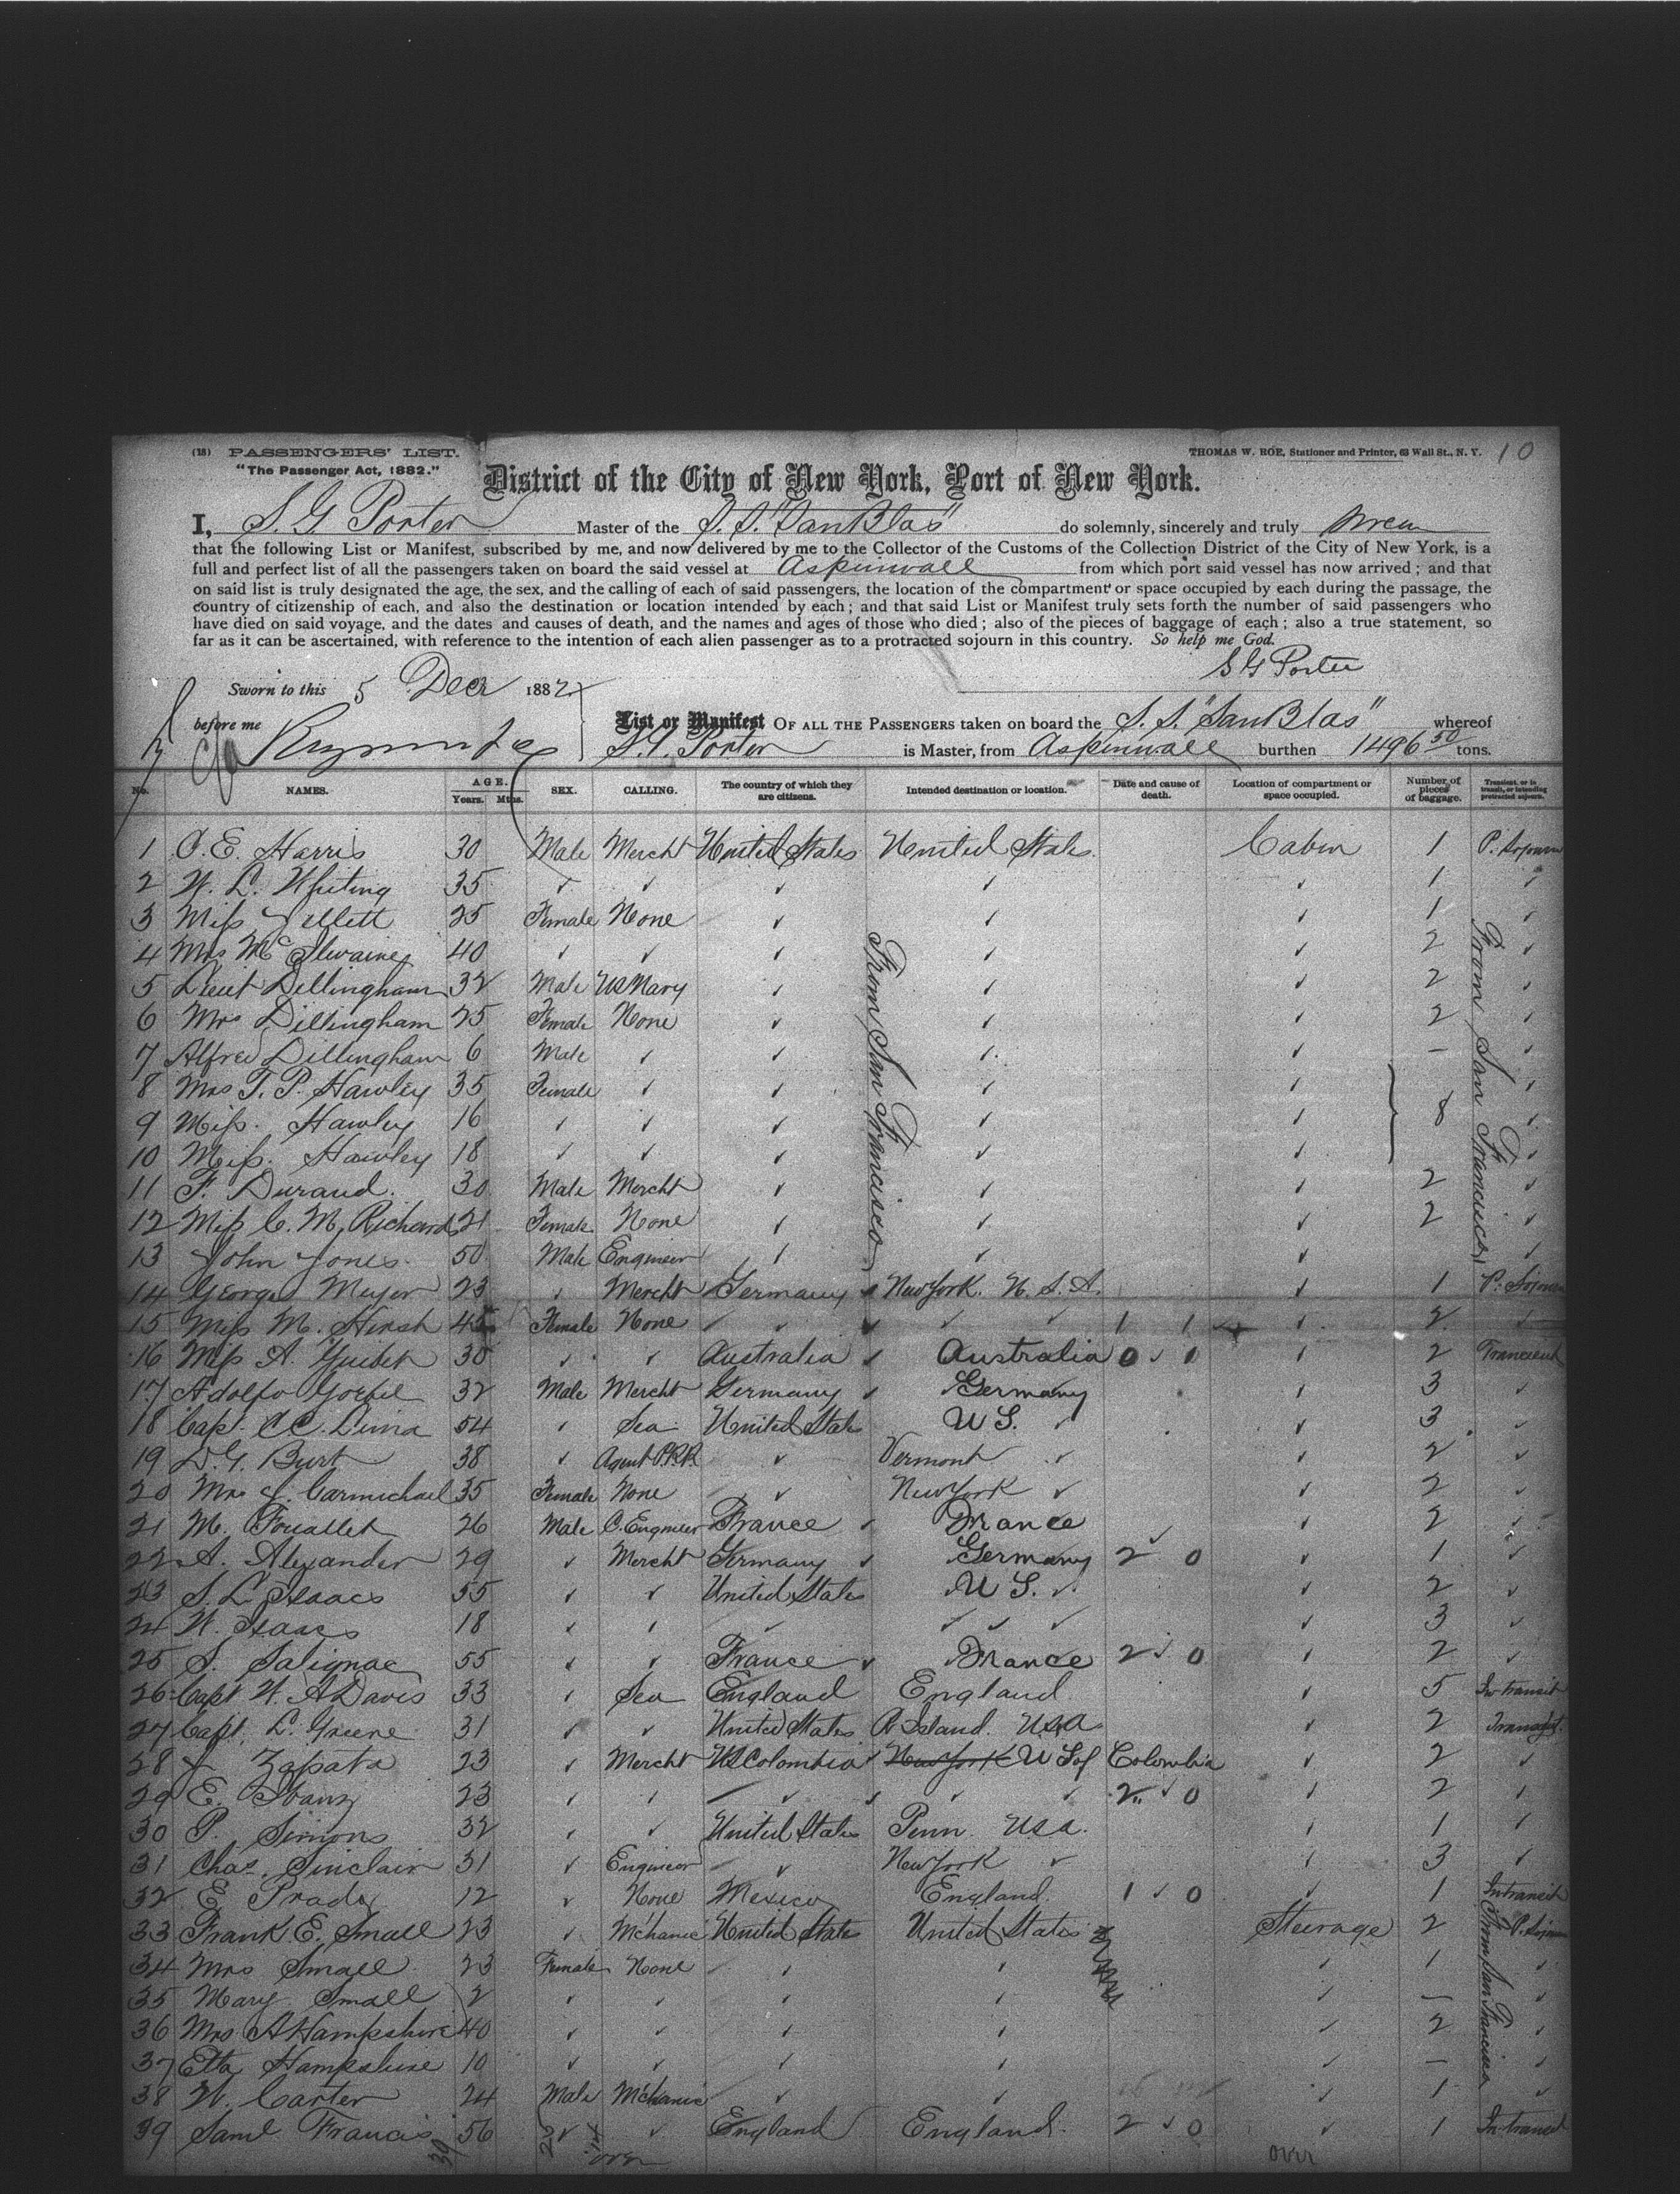 (18) PASSENGERS' LIST.
THOMAS W. ROE, Stationer and Printer, 63 Wall St., N. Y. 10
"The Passenger Act, 1882."
District of the City of New York, Port of New York.
I, S. G. Porter Master of the S. S. "San Blas" do solemnly, sincerely and truly swear
that the following List or Manifest, subscribed by me, and now delivered by me to the Collector of the Customs of the Collection District of the City of New York, is a
full and perfect list of all the passengers taken on board the said vessel at Aspinwall from which port said vessel has now arrived; and that
on said list is truly designated the age, the sex, and the calling of each of said passengers, the location of the compartment or space occupied by each during the passage, the
country of citizenship of each, and also the destination or location intended by each; and that said List or Manifest truly sets forth the number of said passengers who
have died on said voyage, and the dates and causes of death, and the names and ages of those who died; also of the pieces of baggage of each; also a true statement, so
far as it can be ascertained, with reference to the intention of each alien passenger as to a protracted sojourn in this country. So help me God.
S G Porter
Sworn to this 5 Decr 1882
before me
List or Manifest OF ALL THE PASSENGERS taken on board the S. S. "San Blas" whereof
S. G. Porter is Master, from Aspinwall burthen 1496 50 tons.
No. NAMES. AGE. Years. Mths. SEX. CALLING. The country of which they are citizens. Intended destination or location. Date and cause of death. Location of compartment or space occupied. Number of pieces of baggage. Transient, or in transit, or intending protracted sojourn.
1 C. E. Harris 30 Male Mercht United States United States Cabin 1 P. Sojourn
2 W. L. Whiting 35 ✓ ✓ ✓ ✓ ✓ 1 ✓
3 Miss Jellett 25 Female None ✓ ✓ ✓ 1 ✓
4 Mrs McIlwaine 40 ✓ ✓ ✓ ✓ ✓ 2 ✓
5 Lieut Dillingham 32 Male US Navy ✓ ✓ ✓ 2 ✓
6 Mrs Dillingham 25 Female None ✓ ✓ ✓ 2 ✓
7 Alfred Dillingham 6 Male ✓ ✓ ✓ ✓ – ✓
8 Mrs T. P. Hawley 35 Female ✓ ✓ ✓ ✓ ✓
9 Miss. Hawley 16 ✓ ✓ ✓ ✓ ✓ 8 ✓
10 Miss. Hawley 18 ✓ ✓ ✓ ✓ ✓ ✓
11 F. Durand. 30 Male Mercht ✓ ✓ ✓ 2 ✓
12 Miss C. M. Richards 21 Female None ✓ ✓ ✓ 2 ✓
13 John Jones. 50 Male Engineer ✓ ✓ ✓ ✓
From San Francisco
From San Francisco
14 George Meyer 23 ✓ Mercht Germany ✓ New York. U. S. A. ✓ 1 P. Sojourn
15 Miss M. Hirsh 45 Female None ✓ ✓ ✓ 1 1 ✓ 2 ✓
16 Miss A. 30 ✓ ✓ Australia ✓ Australia 0 ✓ 1 ✓ 2 Transient
17 Adolfo Goebel 32 Male Mercht Germany ✓ Germany ✓ 3 ✓
18 Capt. C. C. Lima 54 ✓ Sea United States U S. ✓ ✓ 3 ✓
19 D. G. Burt 38 ✓ Agent P.R.R. ✓ Vermont ✓ ✓ 2 ✓
20 Mrs J. Carmichael 35 Female None ✓ New York ✓ ✓ 2 ✓
21 M. Fouallet 26 Male C. Engineer France ✓ France ✓ 2 ✓
22 A. Alexander 29 ✓ Mercht Germany ✓ Germany 2 ✓ 0 ✓ 1 ✓
23 S. L. Isaacs 55 ✓ ✓ United States U S. ✓ ✓ 2 ✓
24 W. Isaacs 18 ✓ ✓ ✓ ✓ ✓ ✓ ✓ 3 ✓
25 S. Salignac 55 ✓ ✓ France ✓ France 2 ✓ 0 ✓ 2 ✓
26 Capt W. A Davis 33 ✓ Sea England England ✓ 5 In transit
27 Capt. L. Greene 31 ✓ ✓ United States R Island. USA ✓ 2 Transit.
28 J Zapata 23 ✓ Mercht US Colombia ✓ New York U S of Colombia ✓ 2 ✓
29 E. 23 ✓ ✓ ✓ ✓ ✓ 2 ✓ 0 ✓ 2 ✓
30 P. Simons 32 ✓ ✓ United States Penn. USA. ✓ 1 ✓
31 Chas. Sinclair 31 ✓ Engineer ✓ New York ✓ ✓ 3 ✓
32 E Prado 12 ✓ None Mexico England. 1 ✓ 0 ✓ 1 In transit
33 Frank E. Small 23 ✓ Mechanic United States United States Steerage 2 P. Sojourn
34 Mrs Small 23 Female None ✓ ✓ ✓ 1 ✓
35 Mary Small 2 ✓ ✓ ✓ ✓ ✓ – ✓
36 Mrs A Hampshire 40 ✓ ✓ ✓ ✓ ✓ 2 ✓
37 Etta Hampshire 10 ✓ ✓ ✓ ✓ ✓ – ✓
38 W. Carter 24 Male Mechanic ✓ ✓ ✓ 1 ✓
From San Francisco
39 Saml Francis 56 ✓ ✓ England England. 2 ✓ 0 ✓ 1 In transit
39 25 14 over over